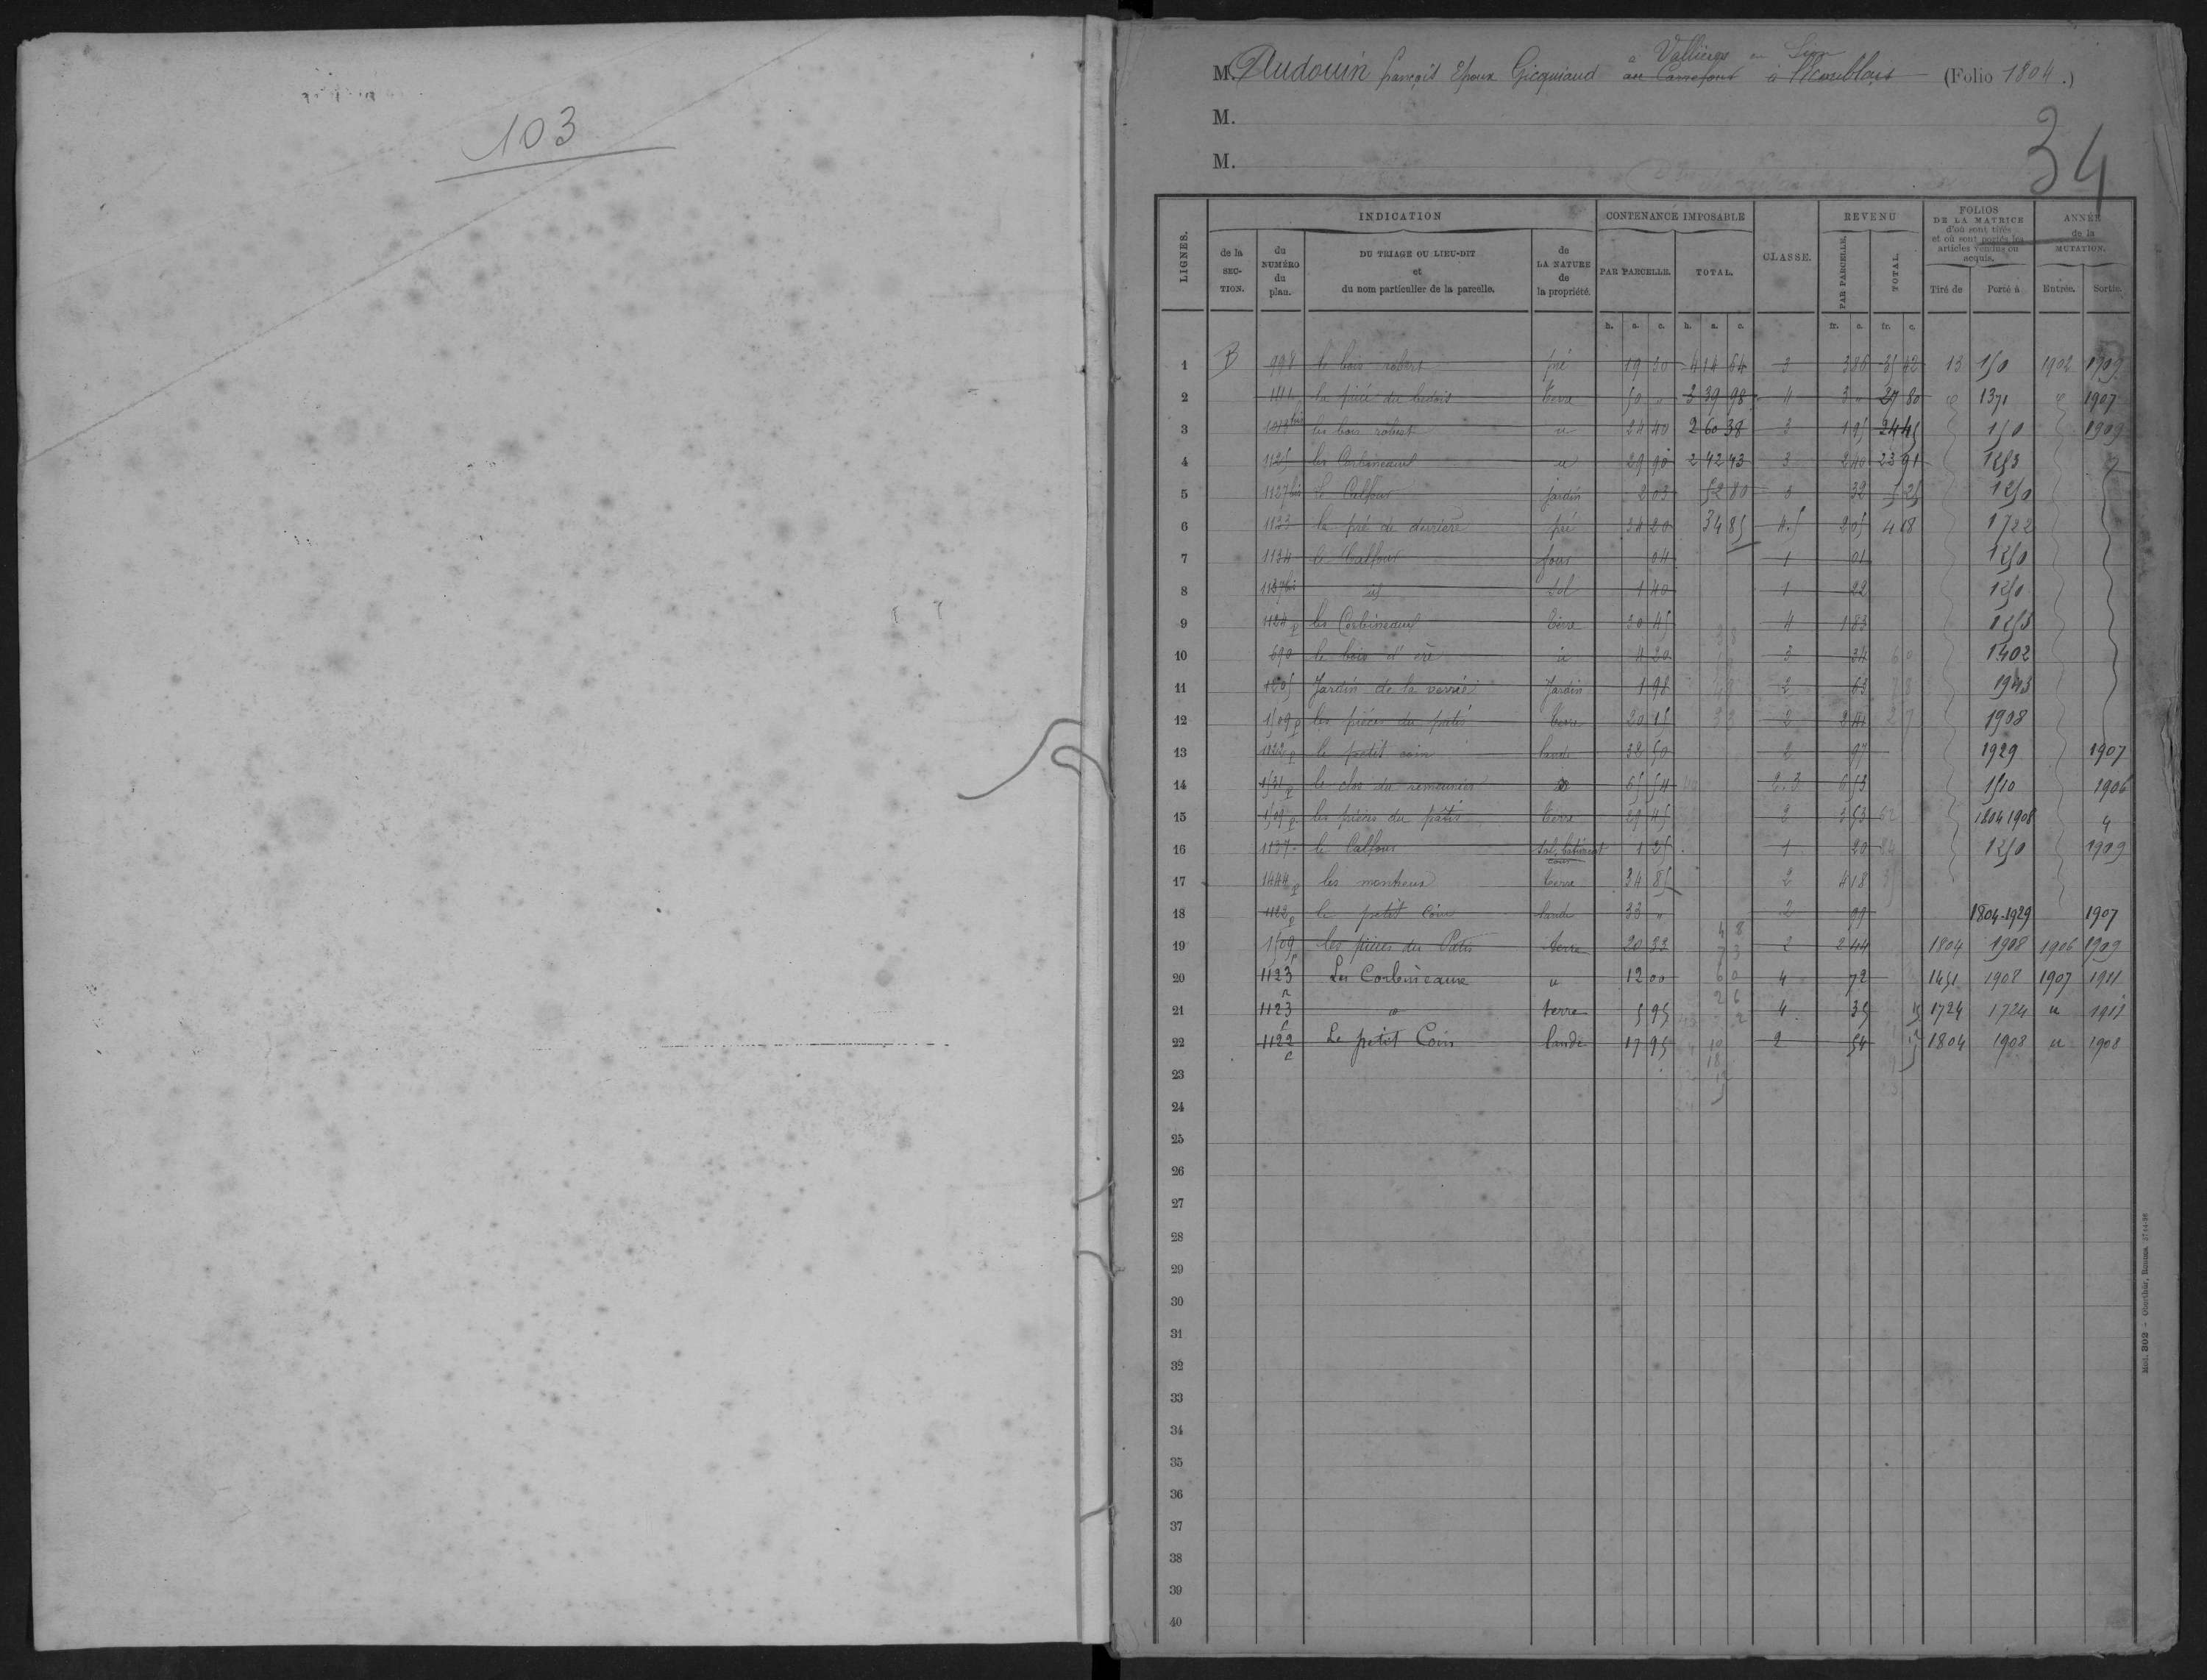 103
à Vallières en Sion
M. Audouin françois Epoux Gicquiaud au Carrefour à Moublais (Folio 1804.)
M.
M.
34
LIGNES.
INDICATION
CONTENANCE IMPOSABLE
CLASSE.
REVENU
FOLIOS DE LA MATRICE d'où sont tirés et où sont portés les articles vendus ou acquis.
ANNÉE de la MUTATION.
de la SECTION.
du NUMÉRO du plan.
DU TRIAGE OU LIEU-DIT et du nom particulier de la parcelle.
de LA NATURE de la propriété.
PAR PARCELLE.
TOTAL.
PAR PARCELLE.
TOTAL.
Tiré de
Porté à
Entrée.
Sortie.
h. a. c. h. a. c. fr. c. fr. c.
1 B 998 le bois robert pré 19 30 4 14 64 3 3 86 35 32 13 150 1902 1909
2 1114 la pièce du bedois terre 50 " 3 39 98 4 3 " 27 80 1371 1907
3 1013 bis les bois robert u 24 40 2 60 38 3 1 95 24 45 150 1909
4 1125 les Corbineaux u 29 90 2 42 43 3 2 40 23 91 1253
5 1127 bis le Calfour jardin 2 03 52 80 3 32 5 25 1250
6 1133 le pré de derrière pré 34 20 34 85 4.5 2 05 4 18 1722
7 1134 le Calfour four 04 1 01 1250
8 1137 bis id Sol 1 40 1 22 1250
9 1124 p les Corbineaux terre 30 45 4 1 83 1253
10 690 le bois d' u 4 20 3 34 1402
11 1205 Jardin de la verrie Jardin 1 98 2 63 1943
12 1509 p les pièces du patis terre 20 15 2 2 41 1908
13 1122 p le petit coin lande 32 50 2 97 1929 1907
14 1531 p le clos du 65 54 2.3 6 53 1510 1906
15 1509 p les pièces du patis terre 29 45 2 3 53 1804 1908 4
16 1137 le Calfour Sol, batiment cour 1 25 1 20 1250 1909
17 1444 p les montreus terre 34 85 2 4 18
18 1122 p le petit Coin lande 33 " 2 99 1804-1929 1907
19 1509 p les pièces du Patis terre 20 33 2 2 44 1804 1908 1906 1909
20 1123 p Les Corbineaux u 12 00 4 72 1451 1908 1907 1911
21 1123 c u terre 5 95 4 35 1724 1724 u 1911
22 1122 c Le petit Coin lande 17 95 2 54 1804 1908 u 1908
23
24
25
26
27
28
29
30
31
32
33
34
35
36
37
38
39
40
Mod. 302 - Oberthür, Rennes